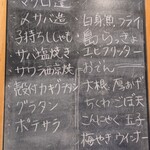 マグロ造
メサバ造
子持ちししゃも
サバ塩焼き
サワラ西京焼
殻付カキグラタン
グラタン
ポテサラ
白身魚フライ
エビフリッター
おでん
大根 厚あげ
ちくわ ごぼ天
こんにゃく 玉子
梅やき ウインナー